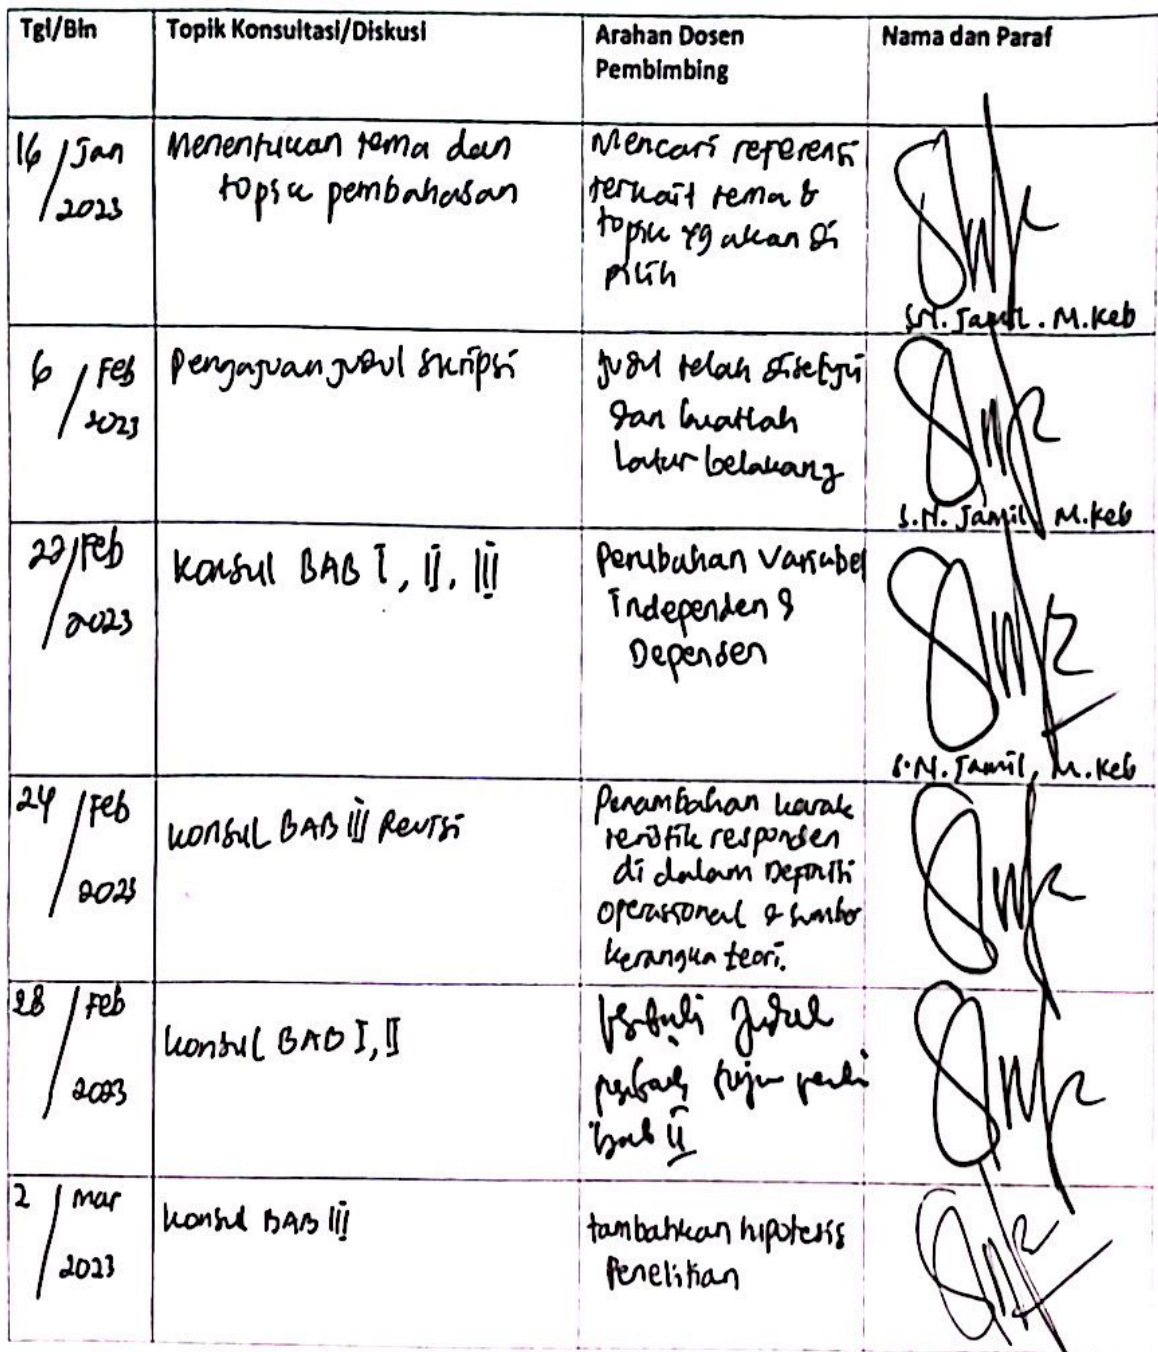 Tgl/Bln
Topik Konsultasi/Diskusi
Arahan Dosen
Pembimbing
Nama dan Paraf
16/Jan
2023
Menentukan tema dan
topik pembahasan
Mencari referensi
terkait tema &
topik yg akan di
pilih
S.N. Jamil. M.Keb
6/Feb
2023
Pengajuan judul skripsi
judul telah disetujui
dan buatlah
latar belakang
S.N. Jamil M.Keb
22/Feb
2023
Konsul BAB I, II, III
Perubahan Variabel
Independen &
Dependen
S.N. Jamil, M.Keb
24/Feb
2023
konsul BAB III Revisi
Penambahan karak
teristik responden
di dalam Definisi
operasional &
kerangka teori.
28/Feb
2023
konsul BAB I, II
judul
bab II
2/Mar
2023
konsul BAB III
tambahkan hipotesis
Penelitian